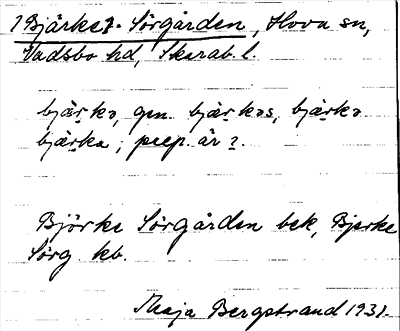 1 Bjärke 7. Sörgården, Hova sn,
Vadsbo hd, Skarab. l.
bjärkə, gen. bjärkəs, bjärkə
bjärka; prep. är 2.
Björke Sörgården bek, Bjerke
Sörg kb.
Maja Bergstrand 1931.